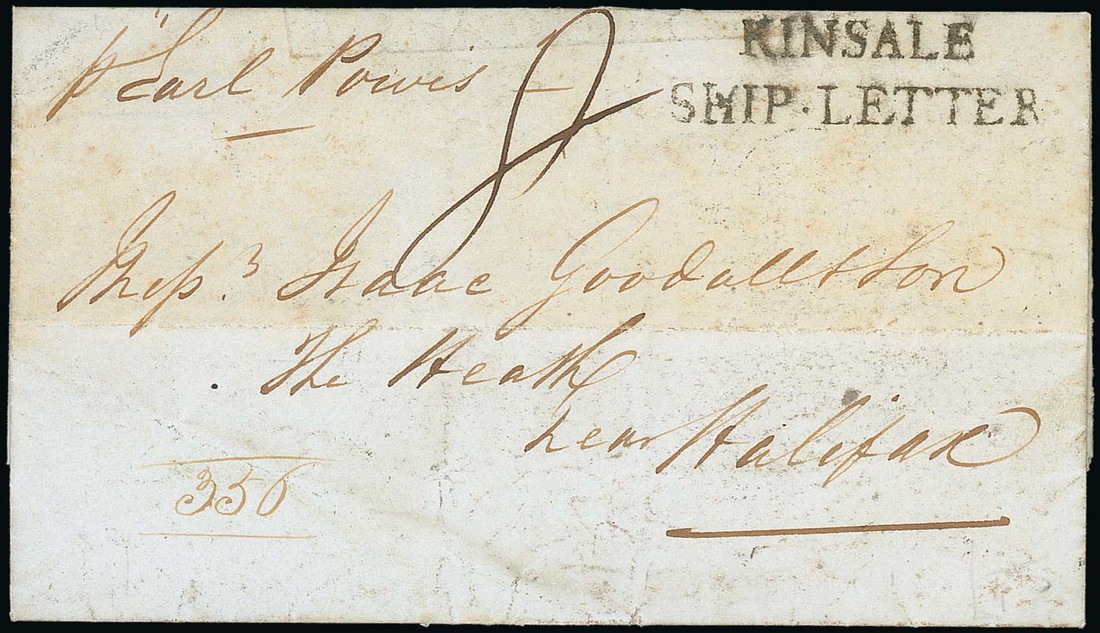 KINSALE
SHIP·LETTER
p "Earl Powis"
8
Mess.rs Isaac Goodall & Son
The Heath
near Halifax
356